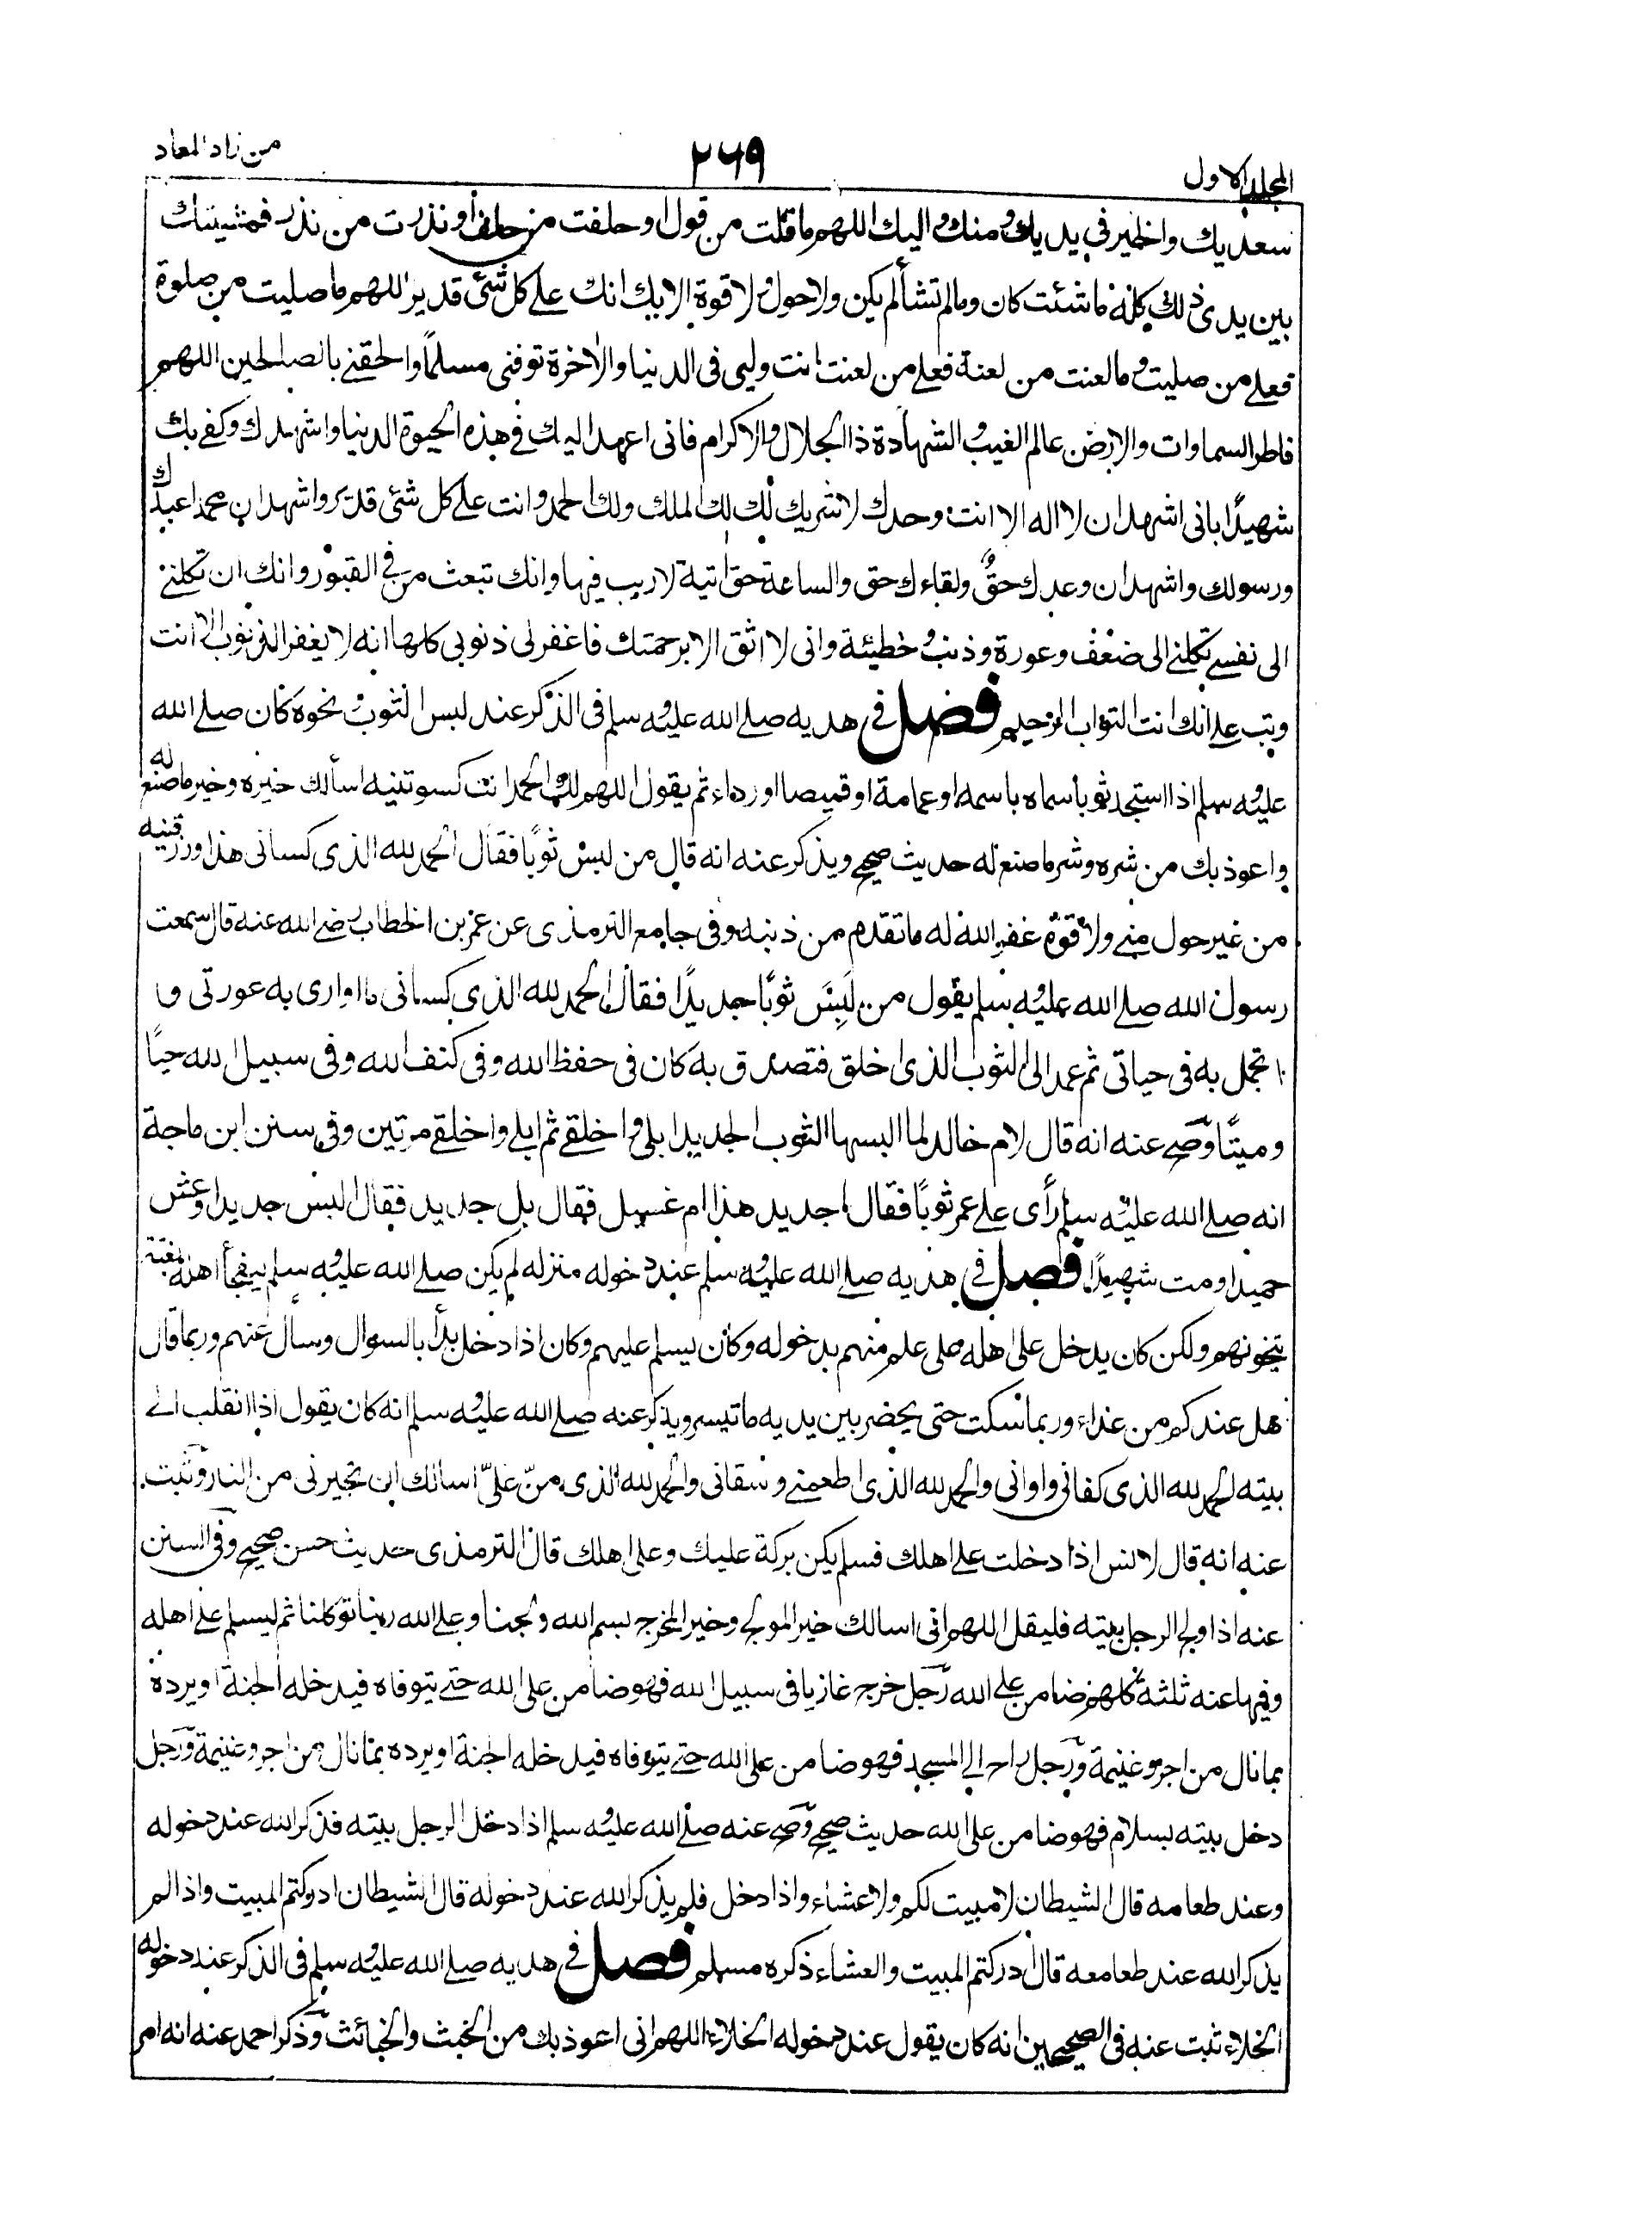 المجلد الاول
۲۶۹
من زاد المعاد
سعديك والخير في يديك ومنك واليك اللهم ما قلت من قول او حلفت من حلف او نذرت من نذر فمشيتك
بين يدى ذلك كله ما شئت كان وما لم تشأ لم يكن ولا حول ولا قوة الا بك انك على كل شئ قدير اللهم ما صليت من صلوة
فعلى من صليت وما لعنت من لعنة فعلى من لعنت انت وليى فى الدنيا والاخرة توفنى مسلمًا والحقنى بالصالحين اللهم
فاطر السماوات والارض عالم الغيب والشهادة ذا الجلال والاكرام فانى اعهد اليك فى هذه الحيوة الدنيا واشهدك وكفى بك
شهيدًا بانى اشهد ان لا اله الا انت وحدك لا شريك لك لك الملك ولك الحمد وانت على كل شئ قدير واشهد ان محمدا عبدك
ورسولك واشهد ان وعدك حقٌ ولقاءك حق والساعة حق اتية لا ريب فيها وانك تبعث من فى القبور وانك ان تكلنى
الى نفسى تكلنى الى ضعف وعورة وذنب وخطيئة وانى لا اثق الا برحمتك فاغفر لى ذنوبى كلها انه لا يغفر الذنوب الا انت
وتب على انك انت التواب الرحيم فصل فى هديه صلى الله عليه وسلم فى الذكر عند لبس الثوب ونحوه كان صلى الله
عليه وسلم اذا استجد ثوبا سماه باسمه او عمامة او قميصا او رداء ثم يقول اللهم لك الحمد انت كسوتنيه اسألك خيره وخير ما صنع له
واعوذ بك من شره وشر ما صنع له حديث صحيح ويذكر عنه انه قال من لبس ثوبًا فقال الحمد لله الذى كسانى هذا ورزقنيه
من غير حول منى ولا قوة غفر الله له ما تقدم من ذنبه وفى جامع الترمذى عن عمر بن الخطاب رضى الله عنه قال سمعت
رسول الله صلى الله عليه وسلم يقول من لَبِسَ ثوبًا جديدًا فقال الحمد لله الذى كسانى ما اوارى به عورتى و
اتجمل به فى حياتى ثم عمد الى الثوب الذى اخلق فتصدق به كان فى حفظ الله وفى كنف الله وفى سبيل الله حيًا
وميتًا وصح عنه انه قال لام خالد لما البسها الثوب الجديد ابلى واخلقى ثم ابلى واخلقى مرتين وفى سنن ابن ماجة
انه صلى الله عليه وسلم رأى على عمر ثوبًا فقال اجديد هذا ام غسيل فقال بل جديد فقال البس جديدا وعش
حميدا ومت شهيدًا فصل فى هديه صلى الله عليه وسلم عند دخوله منزله لم يكن صلى الله عليه وسلم يفجأ اهله بغتة
يتخونهم ولكن كان يدخل على اهله على علم منهم بدخوله وكان يسلم عليهم وكان اذا دخل بدأ بالسوال وسأل عنهم وربما قال
هل عندكم من غداء وربما سكت حتى يحضر بين يديه ما تيسر ويذكر عنه صلى الله عليه وسلم انه كان يقول اذا انقلب الى
بيته الحمد لله الذى كفانى واوانى والحمد لله الذى اطعمنى وسقانى والحمد لله الذى منّ علىّ اسالك ان تجيرنى من النار وثبت
عنه انه قال لانس اذا دخلت على اهلك فسلم يكن بركة عليك وعلى اهلك قال الترمذى حديث حسن صحيح وفى السنن
عنه اذا ولج الرجل بيته فليقل اللهم انى اسالك خير المولج وخير المخرج بسم الله ولجنا وعلى الله ربنا توكلنا ثم ليسلم على اهله
وفيها عنه ثلثة كلهم ضامن على الله رجل خرج غازيا فى سبيل الله فهو ضامن على الله حتى يتوفاه فيدخله الجنة او يرده
بما نال من اجر وغنيمة ورجل راح الى المسجد فهو ضامن على الله حتى يتوفاه فيدخله الجنة او يرده بما نال من اجر وغنيمة ورجل
دخل بيته بسلام فهو ضامن على الله حديث صحيح وصح عنه صلى الله عليه وسلم اذا دخل الرجل بيته فذكر الله عند دخوله
وعند طعامه قال الشيطان لا مبيت لكم ولا عشاء واذا دخل فلم يذكر الله عند دخوله قال الشيطان ادركتم المبيت واذا لم
يذكر الله عند طعامه قال ادركتم المبيت والعشاء ذكره مسلم فصل فى هديه صلى الله عليه وسلم فى الذكر عند دخوله
الخلاء ثبت عنه فى الصحيحين انه كان يقول عند دخوله الخلاء اللهم انى اعوذ بك من الخبث والخبائث وذكر احمد عنه انه امر